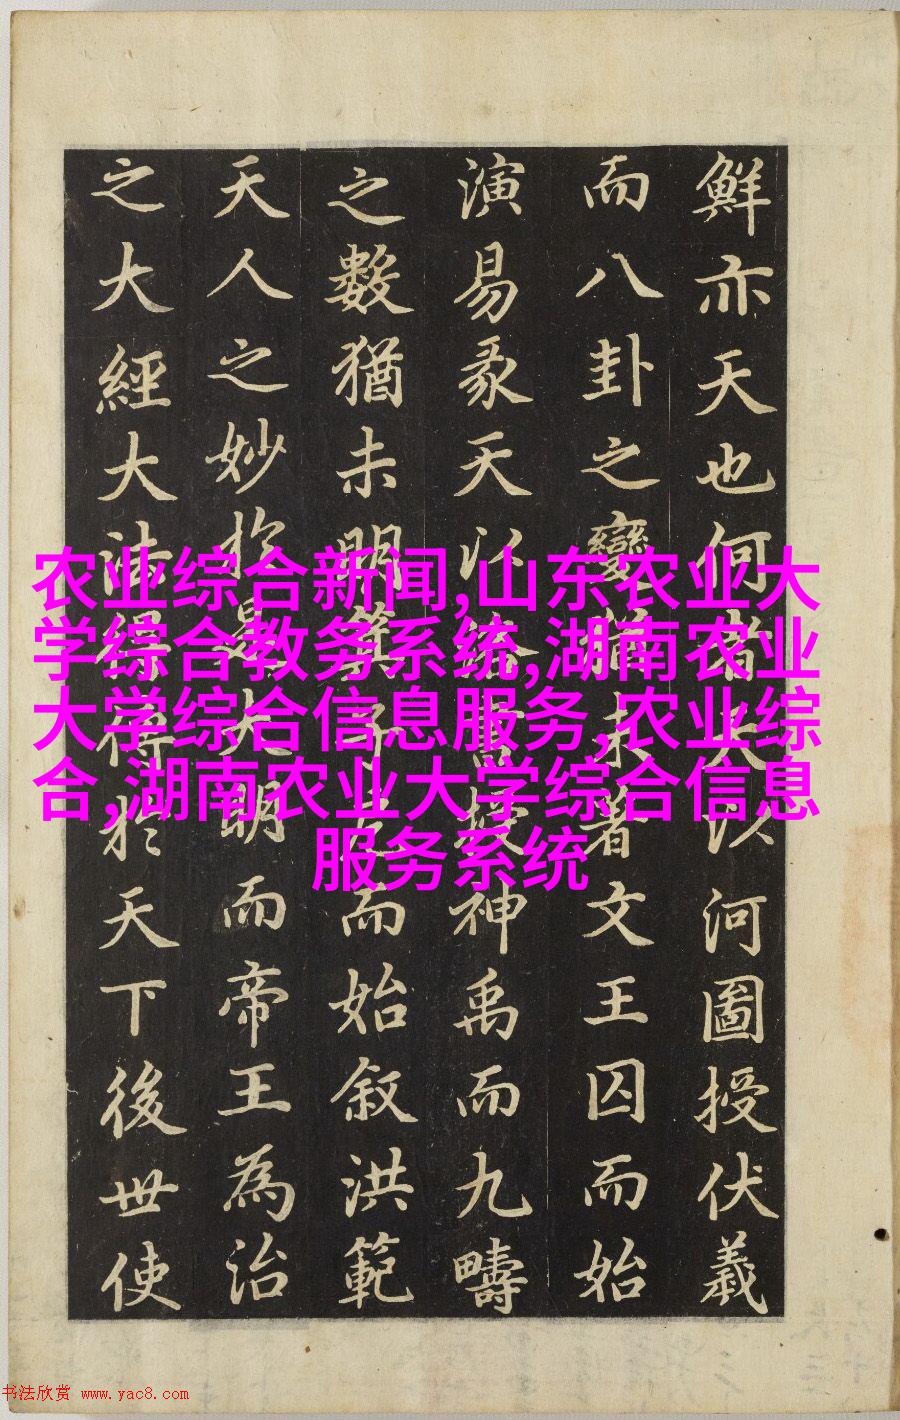 鮮亦天也何者天以河圖授伏羲
而八卦之變未著文王囚而始
演易彖天以洛書授神禹而九疇
之數猶未明箕子而始叙洪範
天人之妙於是大明而帝王為治
之大經大法得於天下後世使
农业综合新闻,山东农业大
学综合教务系统,湖南农业
大学综合信息服务,农业综
合,湖南农业大学综合信息
服务系统
书法欣赏 www.yac8.com